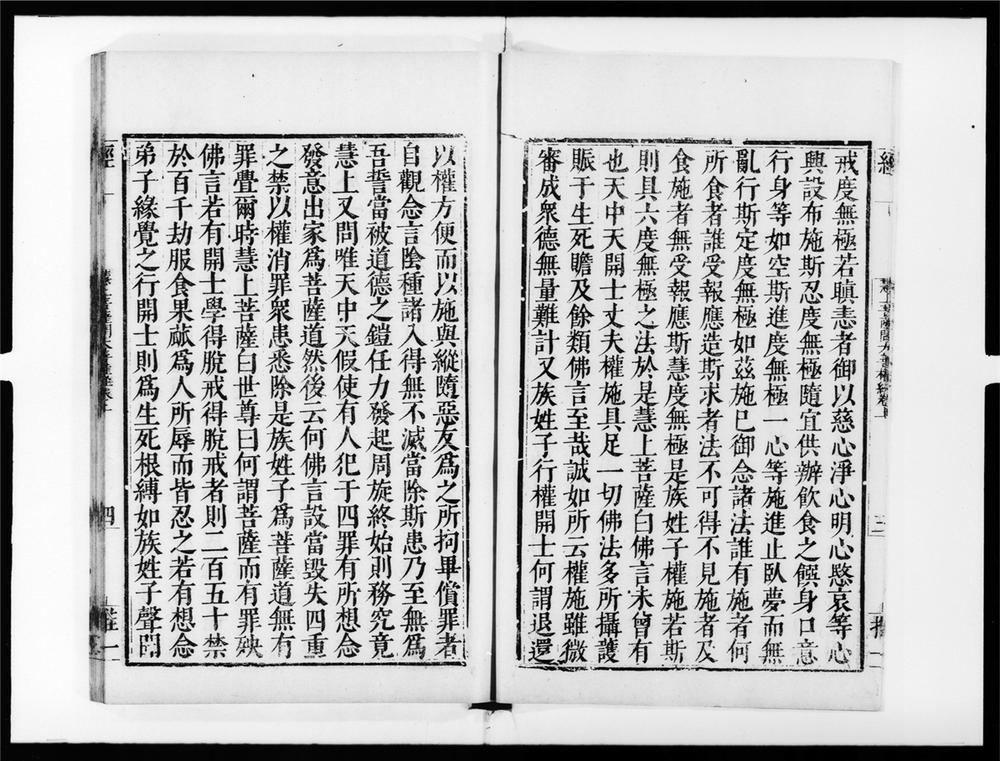 戒度無極若瞋恚者御以慈心淨心明心愍哀等心
興設布施斯忍度無極隨宜供辦飲食之饌身口意
行身等如空斯進度無極一心等施進止臥夢而無
亂行斯定度無極如茲施已御念諸法誰有施者何
所食者誰受報應造斯求者法不可得不見施者及
食施者無受報應斯慧度無極是族姓子權施若斯
則具六度無極之法於是慧上菩薩白佛言未曾有
也天中天開士丈夫權施具足一切佛法多所攝護
賑于生死瞻及餘類佛言至哉誠如所云權施雖微
審成衆德無量難計又族姓子行權開士何謂退還
以權方便而以施與縱隨惡友爲之所拘畢償罪者
自觀念言陰種諸入得無不滅當除斯患乃至無爲
吾誓當被道德之鎧任力發起周旋終始則務究竟
慧上又問唯天中天假使有人犯于四罪有所想念
發意出家爲菩薩道然後云何佛言設當毀失四重
之禁以權消罪衆患悉除是族姓子爲菩薩道無有
罪疊爾時慧上菩薩白世尊曰何謂菩薩而有罪殃
佛言若有開士學得脫戒得脫戒者則二百五十禁
於百千劫服食果蓏爲人所辱而皆忍之若有想念
弟子緣覺之行開士則爲生死根縛如族姓子聲聞
經
四